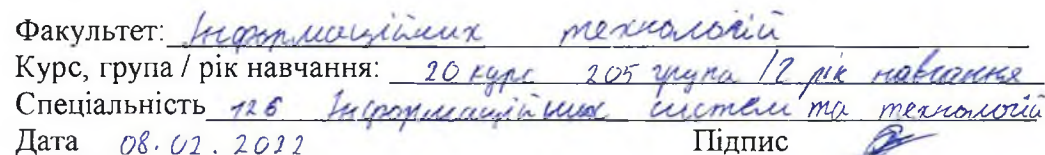 Факультет: Інформаційних технологій
Курс, група / рік навчання: 20 курс 205 група / 2 рік навчання
Спеціальність 126 Інформаційних систем та технологій
Дата 08.02.2022 Підпис